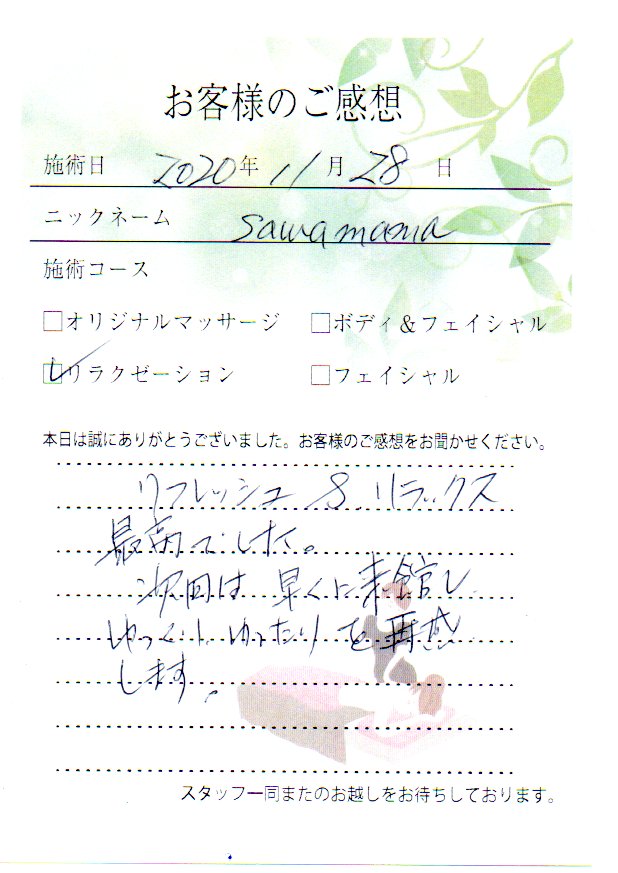 お客様のご感想
施術日 2020年 11月 28日
ニックネーム sawamama
施術コース
□オリジナルマッサージ □ボディ&フェイシャル
☑リラクゼーション □フェイシャル
本日は誠にありがとうございました。お客様のご感想をお聞かせください。
リフレッシュ & リラックス
最高でした。
次回は 早くに来館し
ゆっくり、ゆったりを再感
します。
スタッフ一同またのお越しをお待ちしております。